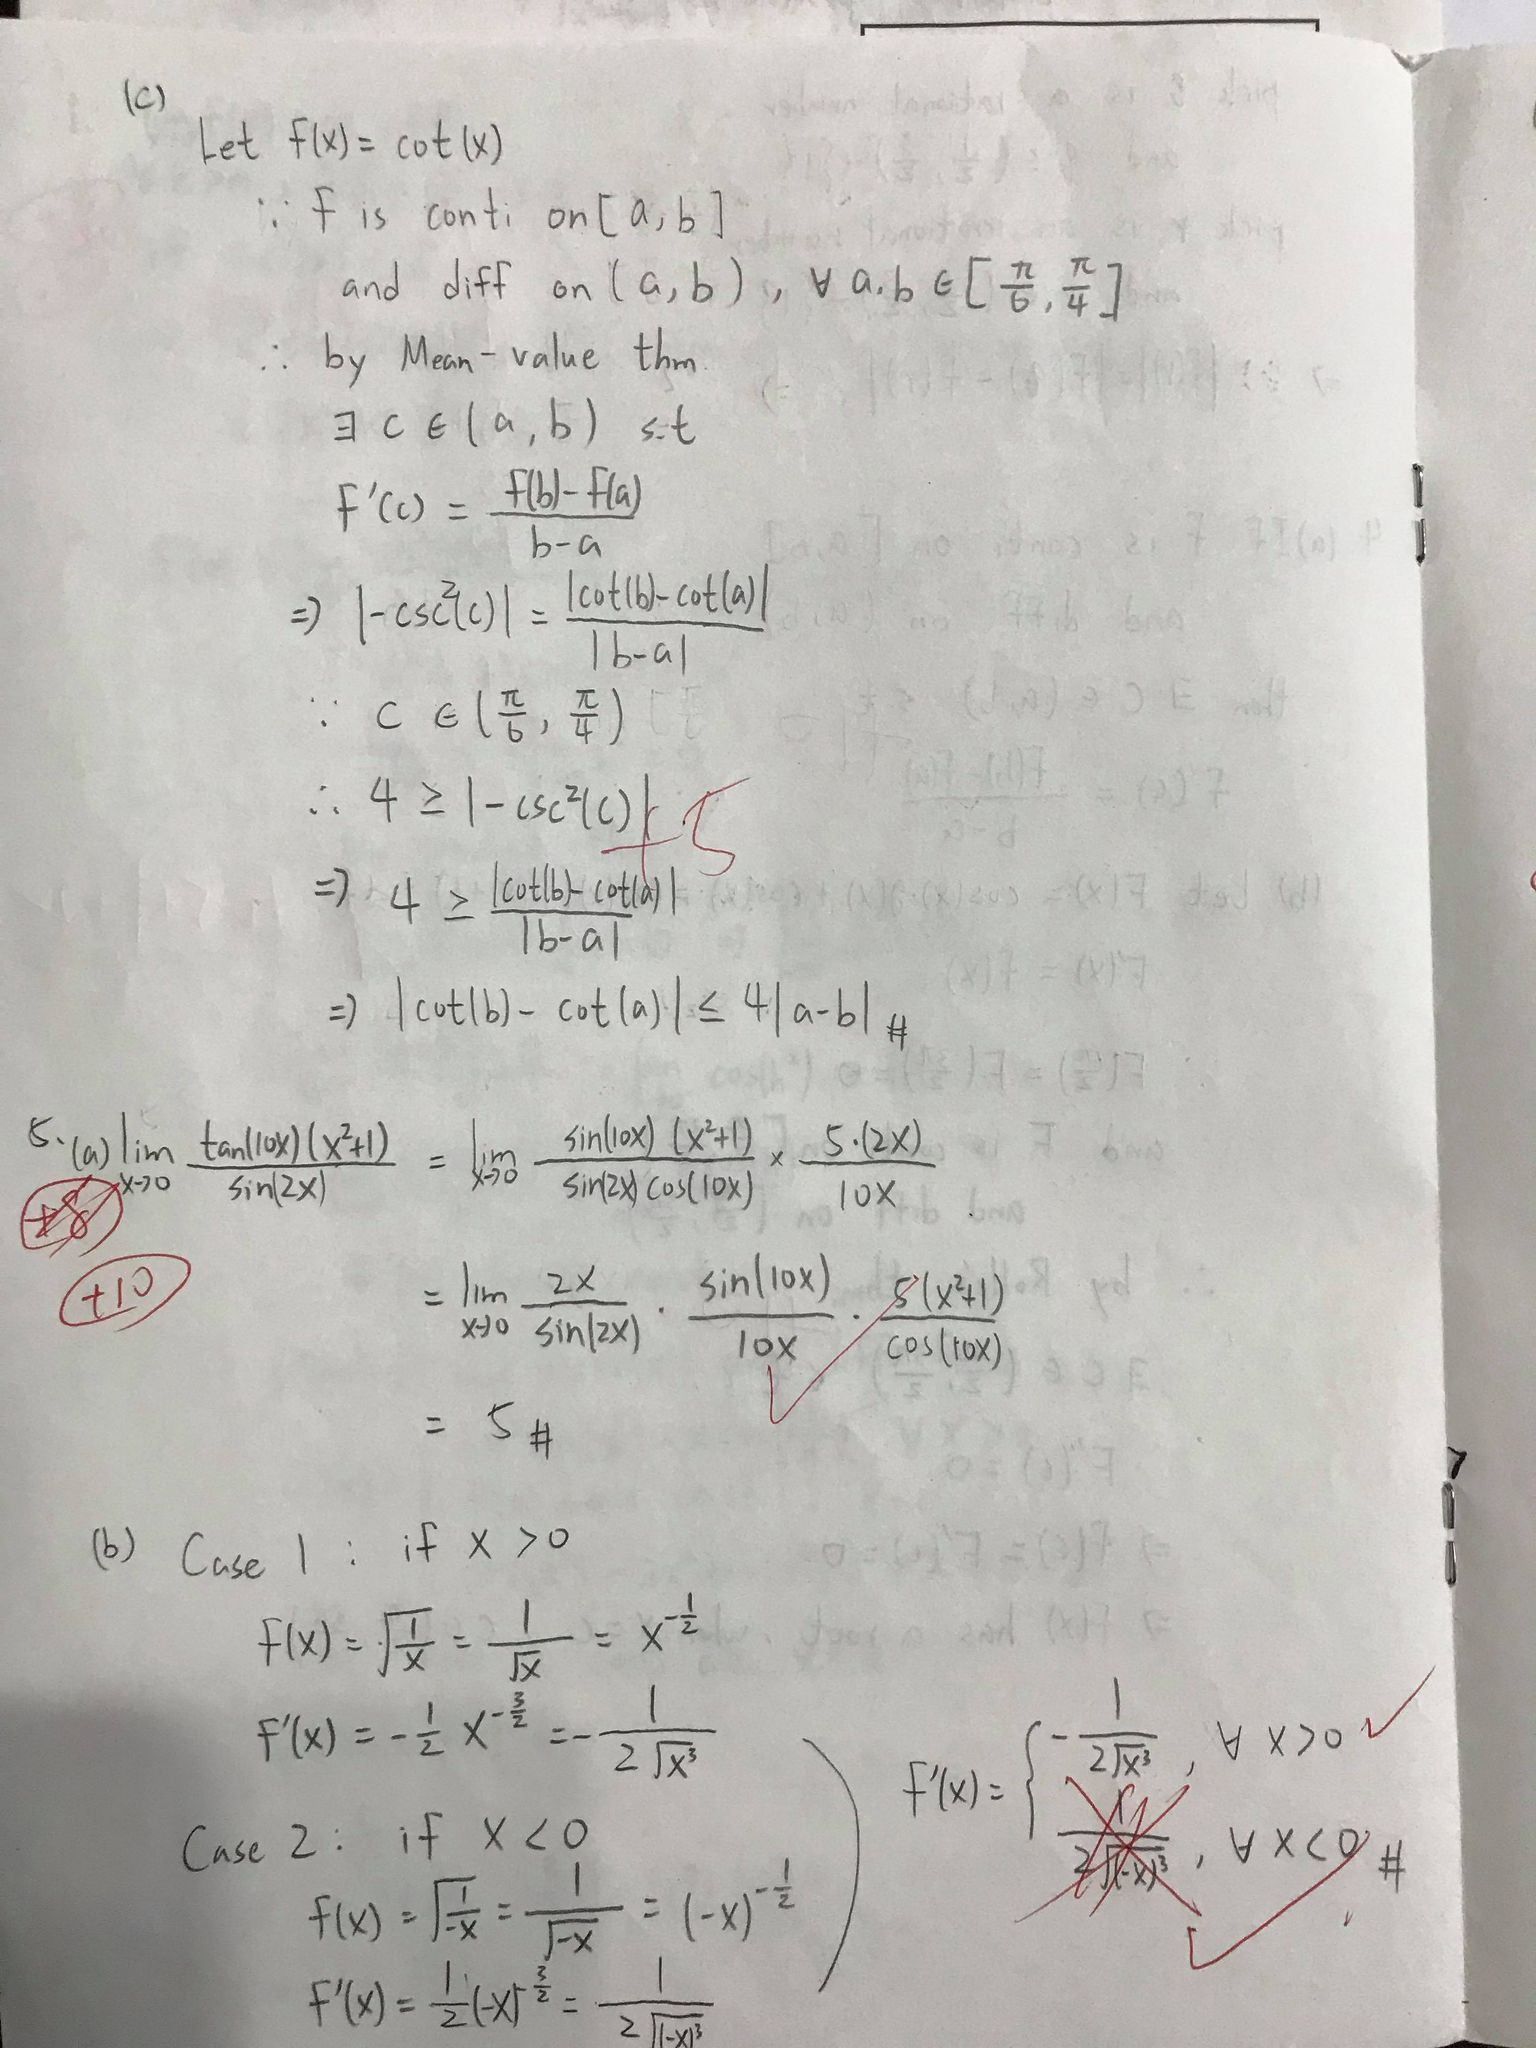 (c)
Let f(x) = cot(x)
∵ f is conti on [a, b]
and diff on (a, b), ∀ a.b ∈ [π/6, π/4]
∴ by Mean-value thm
∃ c ∈ (a, b) s.t
f'(c) = (f(b)-f(a))/(b-a)
⇒ |-csc²(c)| = |cot(b)-cot(a)|/|b-a|
∵ c ∈ (π/6, π/4)
∴ 4 ≥ |-csc²(c)| +5
⇒ 4 ≥ |cot(b)-cot(a)|/|b-a|
⇒ |cot(b)-cot(a)| ≤ 4|a-b| #
5. (a) lim x→0 tan(10x)(x²+1)/sin(2x) = lim x→0 sin(10x)(x²+1)/(sin(2x)cos(10x)) × 5·(2x)/10x
+8
+10
= lim x→0 2x/sin(2x) · sin(10x)/10x · 5(x²+1)/cos(10x)
= 5 #
(b) Case 1 : if x > 0
f(x) = √(1/x) = 1/√x = x^(-1/2)
f'(x) = -1/2 x^(-3/2) = -1/(2√x³)
Case 2 : if x < 0
f(x) = √(1/-x) = 1/√-x = (-x)^(-1/2)
f'(x) = 1/2 (-x)^(-3/2) = 1/(2√(-x)³)
f'(x) = { -1/(2√x³), ∀ x>0
1/(2√(-x)³), ∀ x<0 #